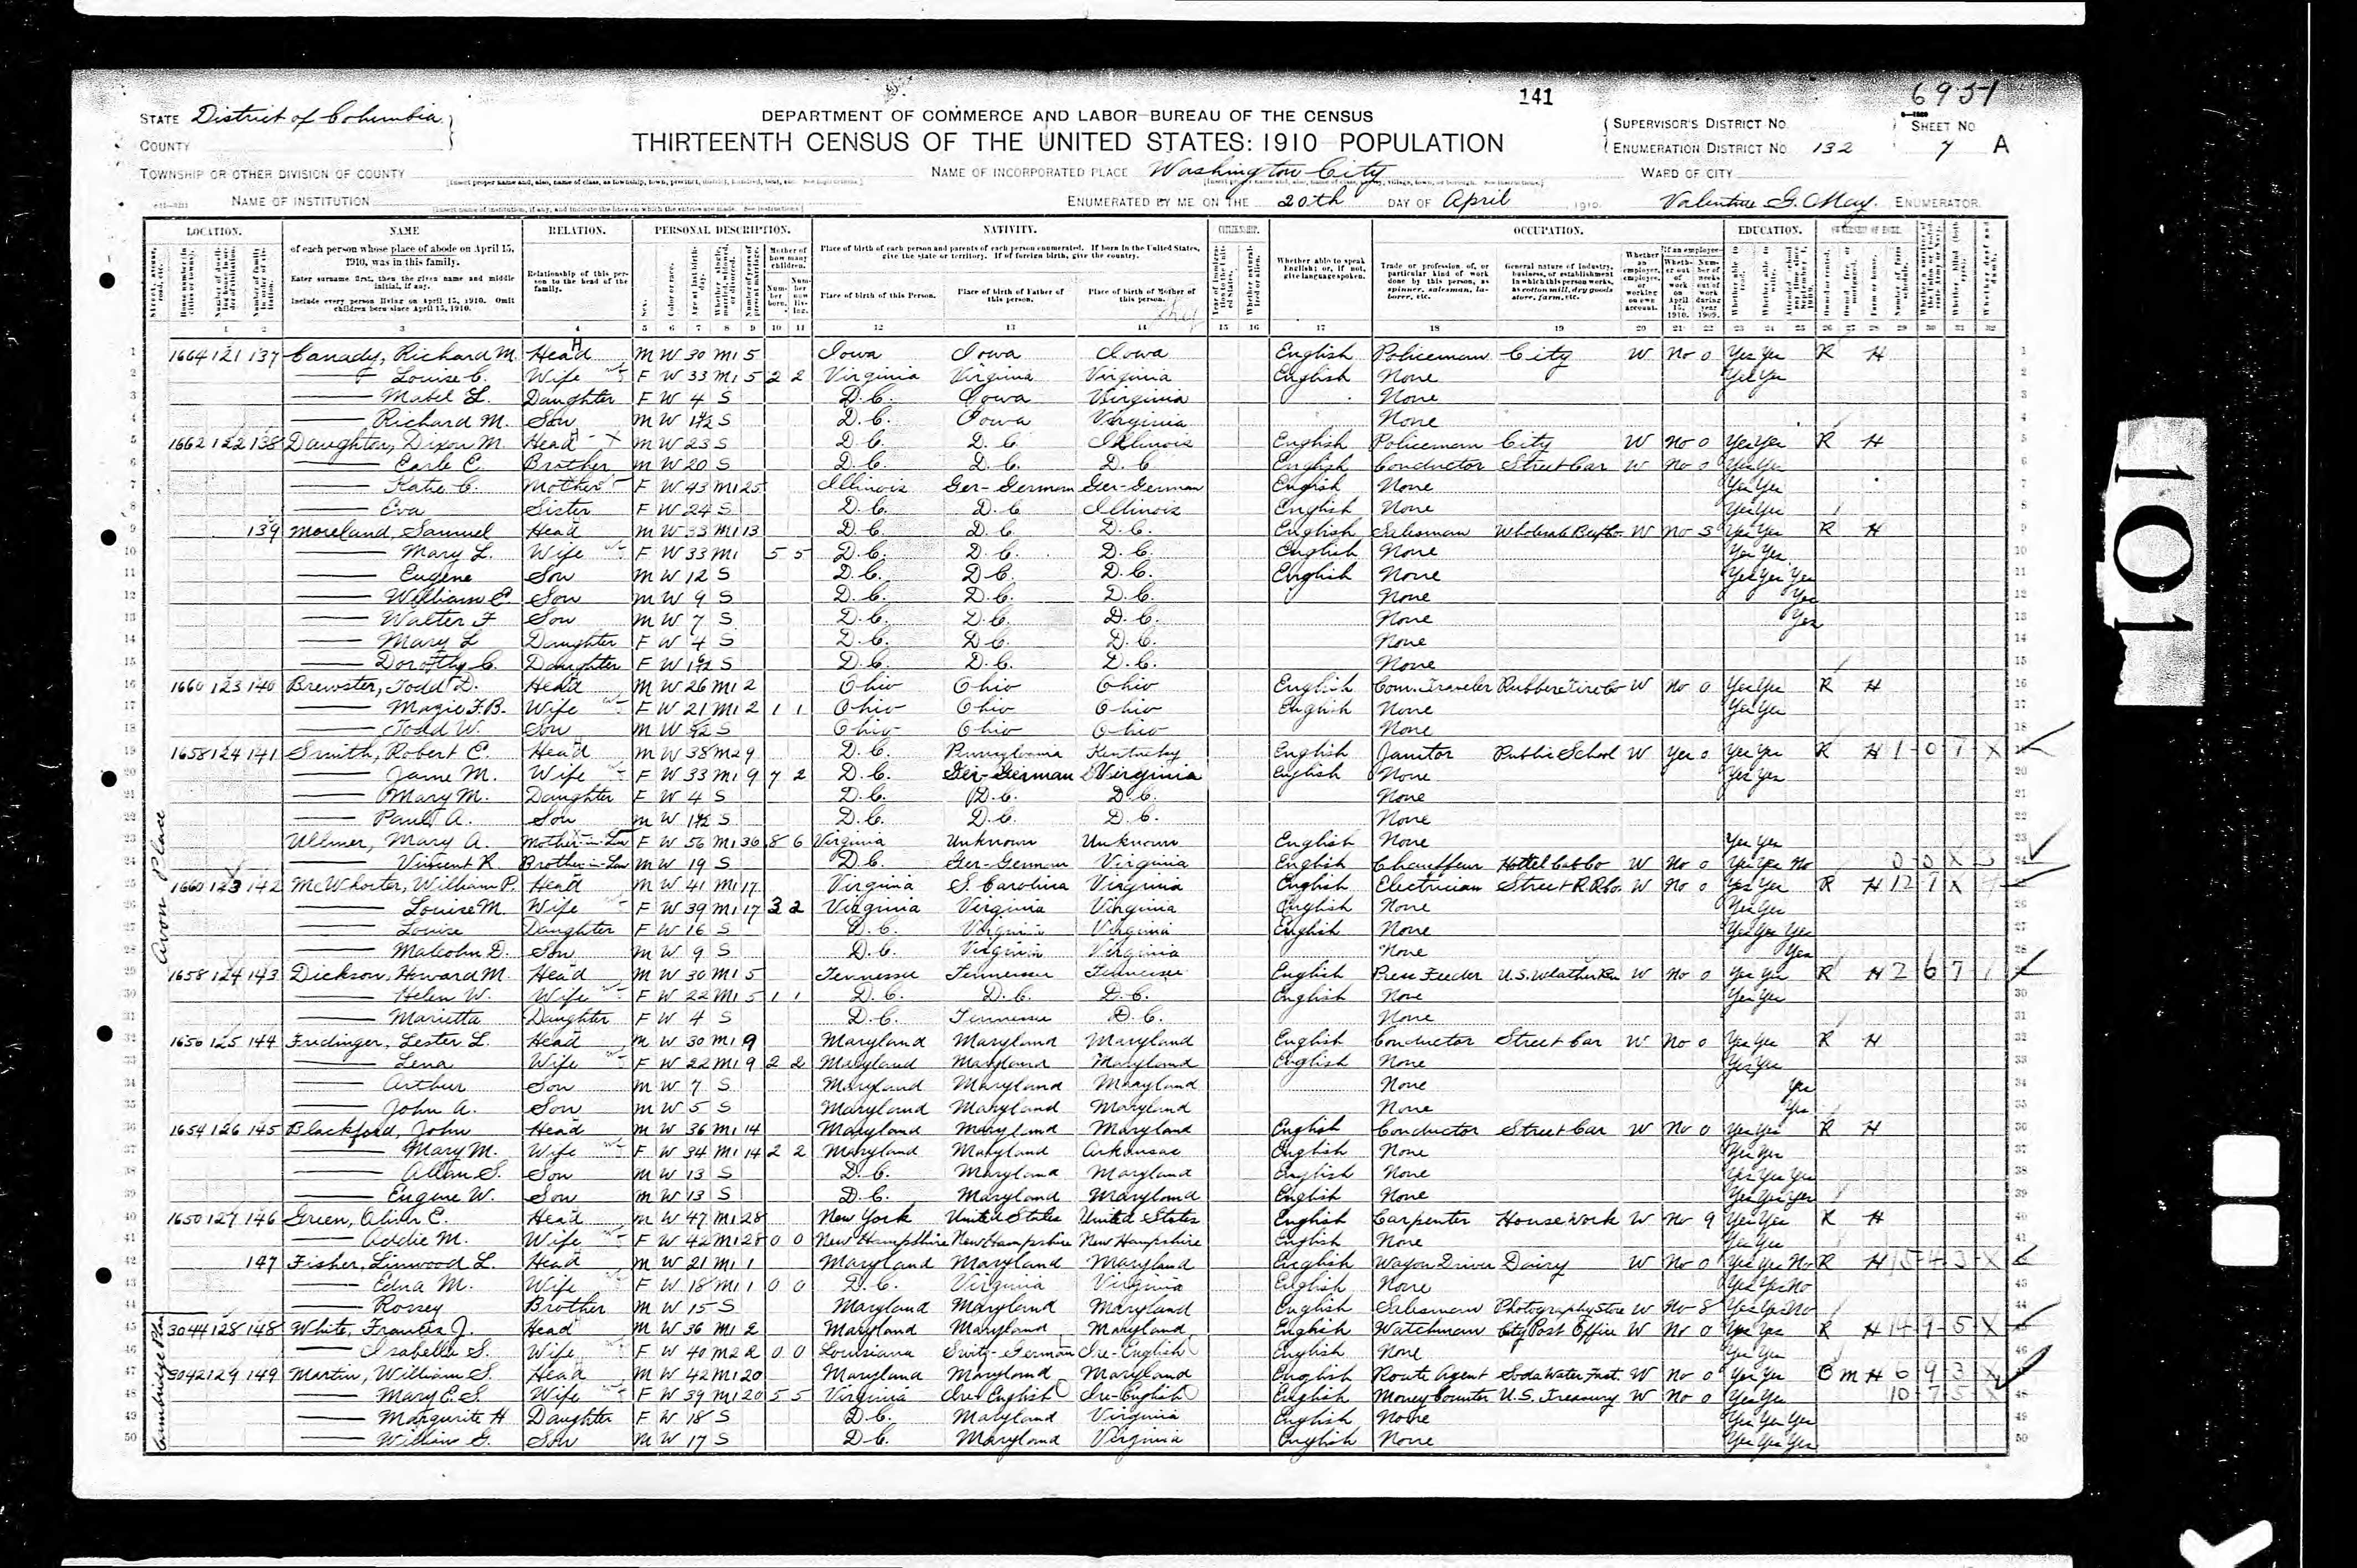 141
6951
STATE District of Columbia
COUNTY
TOWNSHIP OR OTHER DIVISION OF COUNTY
NAME OF INSTITUTION
DEPARTMENT OF COMMERCE AND LABOR-BUREAU OF THE CENSUS
THIRTEENTH CENSUS OF THE UNITED STATES: 1910 POPULATION
NAME OF INCORPORATED PLACE Washington City
ENUMERATED BY ME ON THE 20th DAY OF April 1910.
SUPERVISOR'S DISTRICT NO.
ENUMERATION DISTRICT NO. 132
SHEET NO.
7 A
WARD OF CITY
Valentine G. May, ENUMERATOR.
LOCATION. NAME RELATION. PERSONAL DESCRIPTION. NATIVITY. CITIZENSHIP. OCCUPATION. EDUCATION.
of each person whose place of abode on April 15, 1910, was in this family.
Enter surname first, then the given name and middle initial, if any.
Include every person living on April 15, 1910. Omit children born since April 15, 1910.
Relationship of this person to the head of the family.
Place of birth of each person and parents of each person enumerated. If born in the United States, give the state or territory. If of foreign birth, give the country.
Place of birth of this Person. Place of birth of Father of this person. Place of birth of Mother of this person.
Whether able to speak English; or, if not, give language spoken.
Trade or profession of, or particular kind of work done by this person, as spinner, salesman, laborer, etc.
General nature of industry, business, or establishment in which this person works, as cotton mill, dry goods store, farm, etc.
1 2 3 4 5 6 7 8 9 10 11 12 13 14 15 16 17 18 19 20 21 22 23 24 25 26 27 28 29 30 31 32
1 1664 121 137 Canady, Richard M. Head M W 30 M1 5 Iowa Iowa Iowa English Policeman City W No 0 Yes Yes R H
2 Louise C. Wife F W 33 M1 5 2 2 Virginia Virginia Virginia English None Yes Yes
3 Mabel L. Daughter F W 4 S D.C. Iowa Virginia None
4 Richard M. Son M W S D.C. Iowa Virginia None
5 1662 122 138 Daughter, Dixon M. Head M W 23 S D.C. D.C. Illinois English Policeman City W No 0 Yes Yes R H
6 Earle C. Brother M W 20 S D.C. D.C. D.C. English Conductor Street Car W No 0 Yes Yes
7 Katie C. Mother F W 43 M1 25 Illinois Ger-German Ger-German English None Yes Yes
8 Eva Sister F W 24 S D.C. D.C. Illinois English None Yes Yes
9 139 Moreland, Samuel Head M W 33 M1 13 D.C. D.C. D.C. English Salesman Wholesale W No 3 Yes Yes R H
10 Mary L. Wife F W 33 M1 5 5 D.C. D.C. D.C. English None Yes Yes
11 Eugene Son M W 12 S D.C. D.C. D.C. English None Yes Yes Yes
12 William E. Son M W 9 S D.C. D.C. D.C. None Yes
13 Walter F Son M W 7 S D.C. D.C. D.C. None Yes
14 Mary L Daughter F W 4 S D.C. D.C. D.C. None
15 Dorothy C. Daughter F W S D.C. D.C. D.C. None
16 1660 123 140 Brewster, Todd D. Head M W 26 M1 2 Ohio Ohio Ohio English Com. Traveler Rubber Tire Co W No 0 Yes Yes R H
17 Mazie F.B. Wife F W 21 M1 2 1 1 Ohio Ohio Ohio English None Yes Yes
18 Todd W. Son M W S Ohio Ohio Ohio None
19 1658 124 141 Smith, Robert E. Head M W 38 M2 9 D.C. Pennsylvania Kentucky English Janitor Public School W Yes 0 Yes Yes R H 1-0-7-X
20 Jame M. Wife F W 33 M1 9 7 2 D.C. Ger-German Virginia English None Yes Yes
21 Mary M. Daughter F W 4 S D.C. D.C. D.C. None
22 Paul A. Son M W S D.C. D.C. D.C. None
23 Ullmer, Mary A. Mother-in-Law F W 56 M1 36 8 6 Virginia Unknown Unknown English None Yes Yes
24 Vincent R. Brother-in-Law M W 19 S D.C. Ger-German Virginia English Chauffeur Hotel Cab Co W No 0 Yes Yes No 0 0 X
25 1660 123 142 McWhorter, William P. Head M W 41 M1 17 Virginia S. Carolina Virginia English Electrician Street R.R.Co. W No 0 Yes Yes R H 12 1 X
26 Louise M. Wife F W 39 M1 17 3 2 Virginia Virginia Virginia English None Yes Yes
27 Louise Daughter F W 16 S D.C. Virginia Virginia English None Yes Yes Yes
28 Malcolm D. Son M W 9 S D.C. Virginia Virginia None Yes
29 1658 124 143 Dickson, Howard M. Head M W 30 M1 5 Tennessee Tennessee Tennessee English Press Feeder U.S. Weather W No 0 Yes Yes R H 2 6 7 1
30 Helen W. Wife F W 22 M1 5 1 1 D.C. D.C. D.C. English None Yes Yes
31 Marietta Daughter F W 4 S D.C. Tennessee D.C. None
32 1656 125 144 Fridinger, Lester L. Head M W 30 M1 9 Maryland Maryland Maryland English Conductor Street Car W No 0 Yes Yes R H
33 Lena Wife F W 22 M1 9 2 2 Maryland Maryland Maryland English None Yes Yes
34 Arthur Son M W 7 S Maryland Maryland Maryland None Yes
35 John A. Son M W 5 S Maryland Maryland Maryland None Yes
36 1654 126 145 Blackford, John Head M W 36 M1 14 Maryland Maryland Maryland English Conductor Street Car W No 0 Yes Yes R H
37 Mary M. Wife F W 34 M1 14 2 2 Maryland Maryland Arkansas English None Yes Yes
38 Allan S. Son M W 13 S D.C. Maryland Maryland English None Yes Yes Yes
39 Eugene W. Son M W 13 S D.C. Maryland Maryland English None Yes Yes Yes
40 1650 127 146 Green, Oliver C. Head M W 47 M1 28 New York United States United States English Carpenter House Work W No 9 Yes Yes R H
41 Addie M. Wife F W 42 M1 28 0 0 New Hampshire New Hampshire New Hampshire English None Yes Yes
42 147 Fisher, Linwood L. Head M W 21 M1 1 Maryland Maryland Maryland English Wagon Driver Dairy W No 0 Yes Yes No R H 15-4-3-X
43 Edna M. Wife F W 18 M1 1 0 0 D.C. Virginia Virginia English None Yes Yes No
44 Rossey Brother M W 15 S Maryland Maryland Maryland English Salesman Photography Store W No 8 Yes Yes No
45 3044 128 148 White, Francis J. Head M W 36 M1 2 Maryland Maryland Maryland English Watchman City Post Office W No 0 Yes Yes R H 14-9-5-X
46 Isabella S. Wife F W 40 M2 2 0 0 Louisiana Switz-German Ire-English English None Yes Yes
47 3042 129 149 Martin, William S. Head M W 42 M1 20 Maryland Maryland Maryland English Route Agent Soda Water Fact. W No 0 Yes Yes O M H 6 9 3 X
48 Mary E. S. Wife F W 39 M1 20 5 5 Virginia Ire-English Ire-English English Money Counter U.S. Treasury W No 0 Yes Yes 10-7-5-X
49 Marguerite H Daughter F W 18 S D.C. Maryland Virginia English None Yes Yes Yes
50 William G. Son M W 17 S D.C. Maryland Virginia English None Yes Yes Yes
Avon Place
Cambridge Place
101